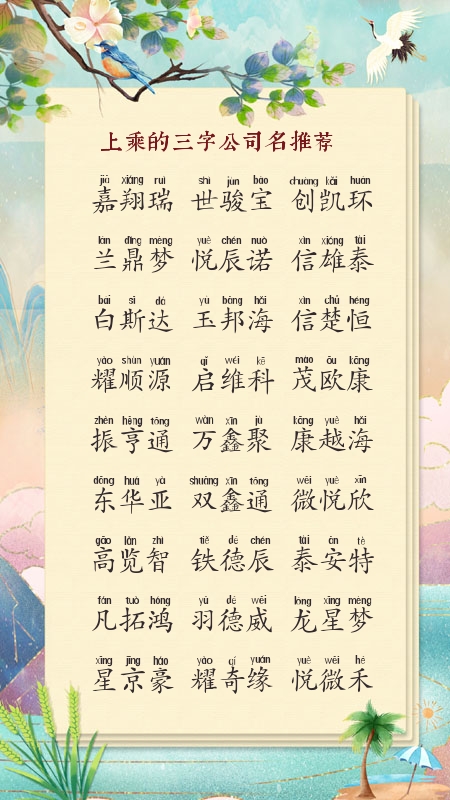 上乘的三字公司名推荐
jiā xiáng ruì shì jùn bǎo chuàng kǎi huán
嘉翔瑞 世骏宝 创凯环
lán dǐng mèng yuè chén nuò xìn xióng tài
兰鼎梦 悦辰诺 信雄泰
bái sī dá yù bāng hǎi xìn chǔ héng
白斯达 玉邦海 信楚恒
yào shùn yuán qǐ wéi kē mào ōu kāng
耀顺源 启维科 茂欧康
zhèn hēng tōng wàn xīn jù kāng yuè hǎi
振亨通 万鑫聚 康越海
dōng huá yà shuāng xīn tōng wēi yuè xīn
东华亚 双鑫通 微悦欣
gāo lǎn zhì tiě dé chén tài ān tè
高览智 铁德辰 泰安特
fán tuò hóng yǔ dé wēi lóng xīng mèng
凡拓鸿 羽德威 龙星梦
xīng jīng háo yào qí yuán yuè wēi hé
星京豪 耀奇缘 悦微禾